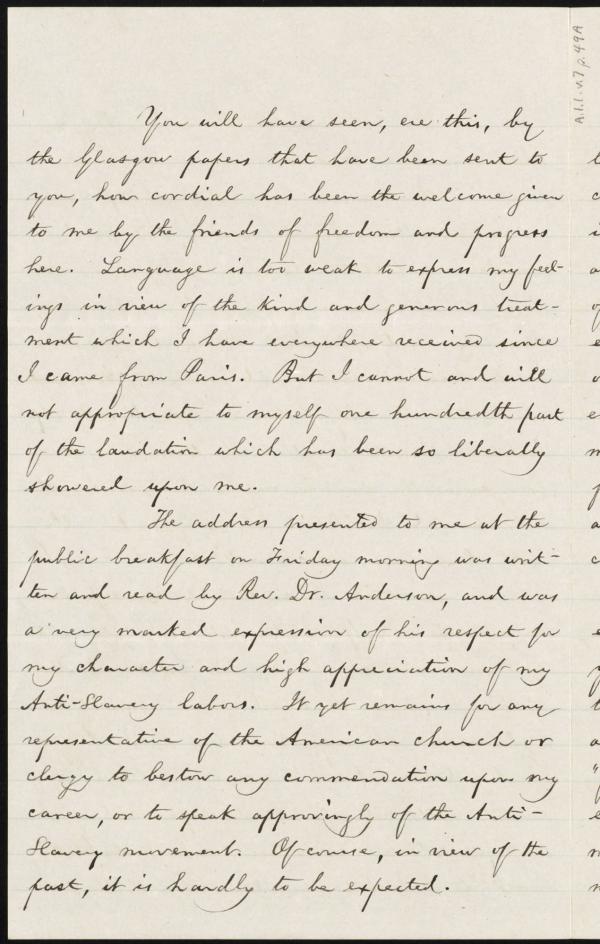 A.1.1. v.7 p.49A
You will have seen, ere this, by
the Glasgow papers that have been sent to
you, how cordial has been the welcome given
to me by the friends of freedom and progress
here. Language is too weak to express my feel-
ings in view of the kind and generous treat-
ment which I have everywhere received since
I came from Paris. But I cannot and will
not appropriate to myself one hundredth part
of the laudation which has been so liberally
showered upon me.
The address presented to me at the
public breakfast on Friday morning was writ-
ten and read by Rev. Dr. Anderson, and was
a very marked expression of his respect for
my character and high appreciation of my
Anti-Slavery labors. It yet remains for any
representative of the American church or
clergy to bestow any commendation upon my
career, or to speak approvingly of the Anti-
Slavery movement. Of course, in view of the
past, it is hardly to be expected.